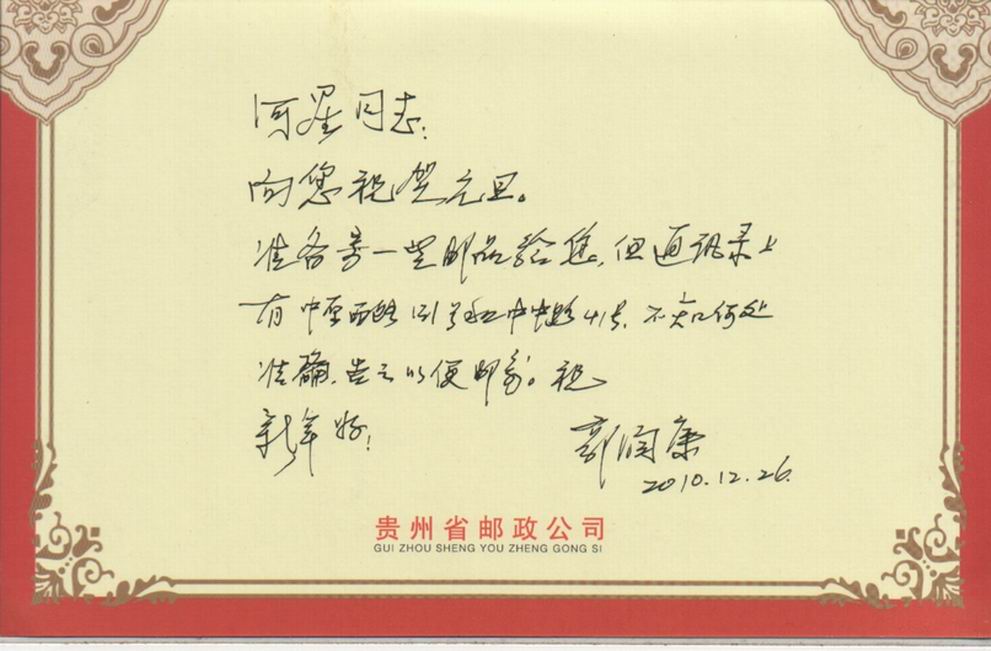 河星同志:
向您祝贺元旦。
准备寄一些邮品给您,但通讯录上
有中原西路131号和中中路41号,不知何处
准确,告之以便邮寄。祝
新年好!
郭润康
2010.12.26.
贵州省邮政公司
GUI ZHOU SHENG YOU ZHENG GONG SI